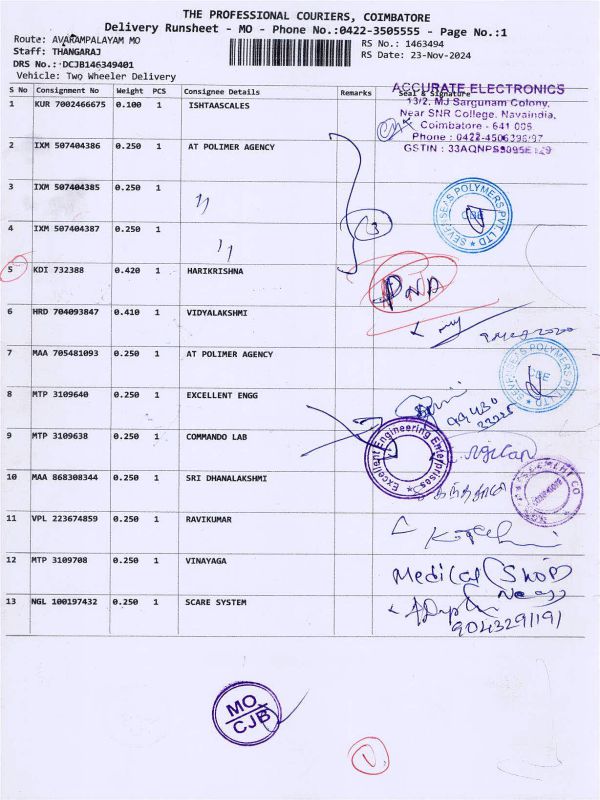 THE PROFESSIONAL COURIERS, COIMBATORE
Delivery Runsheet - MO - Phone No.:0422-3505555 - Page No.:1
Route: AVARAMPALAYAM MO
Staff: THANGARAJ
DRS No.: DCJB146349401
Vehicle: Two Wheeler Delivery
RS No.: 1463494
RS Date: 23-Nov-2024
S No Consignment No Weight PCS Consignee Details Remarks Seal & Signature
1 KUR 7002466675 0.100 1 ISHTAASCALES
ACCURATE ELECTRONICS
13/2, MJ Sargunam Colony,
Near SNR College, Navaindia,
Coimbatore - 641 006
Phone : 0422-4506396/97
GSTIN : 33AQNPS5095E1Z9
2 IXM 507404386 0.250 1 AT POLIMER AGENCY
3 IXM 507404385 0.250 1 "
4 IXM 507404387 0.250 1 "
3
SEVENSEAS POLYMERS PVT LTD
CBE
5 KDI 732388 0.420 1 HARIKRISHNA
PNA
6 HRD 704093847 0.410 1 VIDYALAKSHMI
7 MAA 705481093 0.250 1 AT POLIMER AGENCY
SEVENSEAS POLYMERS PVT LTD
CBE
8 MTP 3109640 0.250 1 EXCELLENT ENGG
Excellent Engineering Enterprises
9 MTP 3109638 0.250 1 COMMANDO LAB
10 MAA 868308344 0.250 1 SRI DHANALAKSHMI
11 VPL 223674859 0.250 1 RAVIKUMAR
12 MTP 3109708 0.250 1 VINAYAGA
Medical Shop
13 NGL 100197432 0.250 1 SCARE SYSTEM
9043291191
MO
CJB